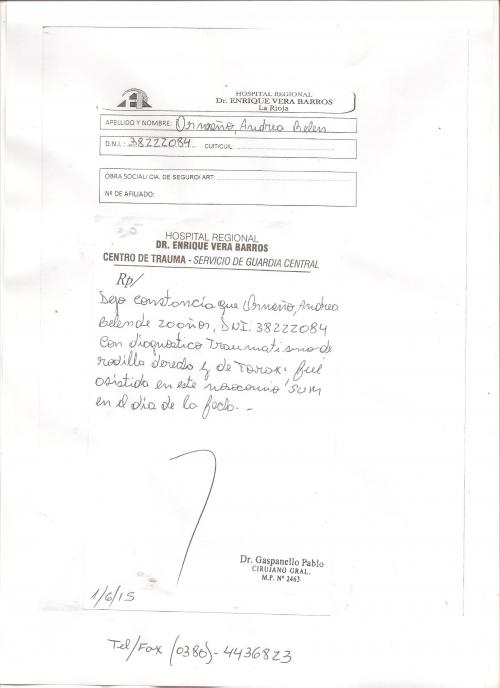 HOSPITAL REGIONAL
Dr. ENRIQUE VERA BARROS
La Rioja
APELLIDO Y NOMBRE: Ormeño, Andrea Belen
D.N.I.: 38222084 CUIT/CUIL:
OBRA SOCIAL/ CIA. DE SEGURO/ ART:
Nº DE AFILIADO:
HOSPITAL REGIONAL
DR. ENRIQUE VERA BARROS
CENTRO DE TRAUMA - SERVICIO DE GUARDIA CENTRAL
Rp/
Dejo constancia que Ormeño, Andrea
Belen de 20 años, DNI. 38222084
Con diagnostico Traumatismo de
rodilla derecha y de Torax. fué
asistida en este nosocomio
en el día de la fecha. -
Dr. Gaspanello Pablo
CIRUJANO GRAL.
M.P. Nº 2463
1/6/15
Tel/Fax (0380) - 4436823